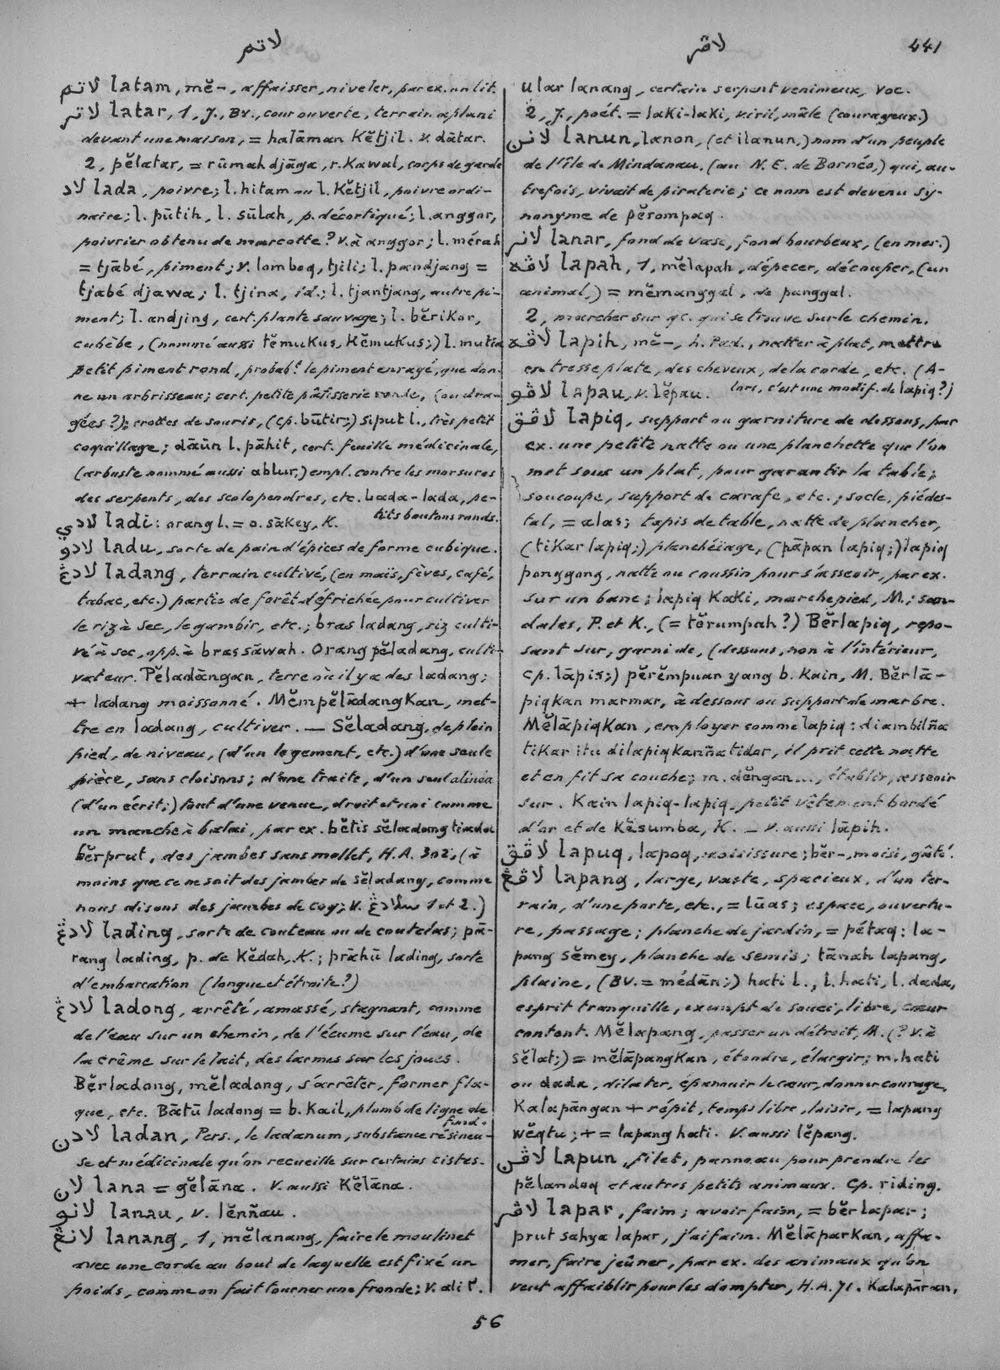 لاتم
لاڤر
441
لاتم latam, mĕ-, affaisser, niveler, par ex. un lit.
لاتر latar, 1, J., Bv., cour ouverte, terrain aplani
devant une maison, = halāman Kĕtjil. v. dātar.
2, pĕlatar, = rūmah djāga, r. Kawal, corps de garde
لاد lada, poivre; l. hitam ou l. Kĕtjil, poivre ordi-
naire; l. pūtih, l. sūlah, p. décortiqué; l. anggor,
poivrier obtenu de marcotte? v. à anggor; l. mérah
= tjābé, piment; v. lomboq, tjili; l. pandjang =
tjabé djawa; l. tjina, id.; l. tjantjang, autre pi-
ment; l. andjing, cert. plante sauvage; l. bĕriKor,
cubèbe, (nommé aussi tĕmuKus, KĕmuKus;) l. mutia
petit piment rond, probabt. le piment enragé, que don-
ne un arbrisseau; cert. petite pâtisserie ronde, (ou dra-
gées?); crottes de souris, (cp. būtir;) siput l., très petit
coquillage; dāūn l. pāhit, cert. feuille médicinale,
(arbuste nommé aussi ablur,) empl. contre les morsures
des serpents, des scolopendres, etc. Lada-lada, pe-
tits boutons ronds.
لادي ladi: orang l. = o. sāKey, K.
لادو ladu, sorte de pain d'épices de forme cubique.
لادڠ ladang, terrain cultivé, (en maïs, fèves, café,
tabac, etc.) partie de forêt défrichée pour cultiver
le riz à sec, le gambir, etc.; bras ladang, riz culti-
vé à sec, opp. à bras sāwah. Orang pĕladang, culti-
vateur. Pĕladāngan, terre où il y a des ladang;
+ ladang moissonné. MĕmpĕlādangKan, met-
tre en ladang, cultiver. — Sĕladang, de plein
pied, de niveau, (d'un logement, etc.) d'une seule
pièce, sans cloisons; d'une traite, d'un seul alinéa
(d'un écrit;) tout d'une venue, droit et uni comme
un manche à balai, par ex. bĕtis sĕladang tiada
bĕrprut, des jambes sans mollet, H.A. 302, (à
moins que ce ne soit des jambes de sĕladang, comme
nous disons des jambes de coq; v. سلادڠ 1 et 2.)
لادڠ lading, sorte de couteau ou de coutelas; pā-
rang lading, p. de Kĕdah, K.; prāhū lading, sorte
d'embarcation (longue et étroite?)
لادڠ ladong, arrêté, amassé, stagnant, comme
de l'eau sur un chemin, de l'écume sur l'eau, de
la crême sur le lait, des larmes sur les joues.
Bĕrladong, mĕladong, s'arrêter, former fla-
que, etc. Bātū ladong = b. Kail, plomb de ligne de
fond.
لادن ladan, Pers., le ladanum, substance résineu-
se et médicinale qu'on recueille sur certains cistes.
لان lana = gĕlāna. V. aussi Kĕlāna.
لانو lanau, v. lĕnñau.
لانڠ lanang, 1, mĕlanang, faire le moulinet
avec une corde au bout de laquelle est fixé un
poids, comme on fait tourner une fronde; v. ali٢.
ular lanang, certain serpent venimeux, voc.
2, J., poét. = laKi-laKi, viril, mâle (courageux.)
لانن lanun, lanon, (et ilanun,) nom d'un peuple
de l'île de Mindanau, (au N.E. de Bornéo,) qui, au-
trefois, vivait de piraterie; ce nom est devenu sy-
nonyme de pĕrompaq.
لانر lanar, fond de vase, fond bourbeux, (en mer.)
لاڤه lapah, 1, mĕlapah, dépecer, découper, (un
animal,) = mĕmanggal, de panggal.
2, marcher sur qc. qui se trouve sur le chemin.
لاڤه lapih, mĕ-, h. Pad., natter à plat, mettre
en tresse plate, des cheveux, de la corde, etc. (A-
lors, c'est une modif. de lapiq?)
لاڤو lapau, v. lĕpau.
لاڤق lapiq, support ou garniture de dessous, par
ex. une petite natte ou une planchette que l'on
met sous un plat, pour garantir la table;
soucoupe, support de carafe, etc.; socle, piédes-
tal, = alas; tapis de table, natte de plancher,
(tiKar lapiq;) planchéiage, (pāpan lapiq;) lapiq
ponggong, natte ou coussin pour s'asseoir, par ex.
sur un banc; lapiq KaKi, marchepied, M.; san-
dales, P. et K., (= tĕrumpah?) Bĕrlapiq, repo-
sant sur, garni de, (dessous, non à l'intérieur,
cp. lāpis;) pĕrĕmpuan yang b. Kain, M. Bĕrlā-
piqKan marmar, à dessous ou support de marbre.
MĕlāpiqKan, employer comme lapiq: diambilña
tiKar itu dilapiqKanña tidor, il prit cette natte
et en fit sa couche; m. dĕngan..., établir, asseoir
sur. Kain lapiq-lapiq, petit vêtement bordé
d'or et de Kĕsumba, K. — V. aussi lāpih.
لاڤق lapuq, lapoq, moisissure; bĕr-, moisi, gâté.
لاڤڠ lapang, large, vaste, spacieux, d'un ter-
rain, d'une porte, etc., = lūas; espace, ouvertu-
re, passage; planche de jardin, = pétaq: la-
pang sĕmey, planche de semis; tānah lapang,
plaine, (BV. = médān;) hati l., l. hati, l. dada,
esprit tranquille, exempt de souci, libre, cœur
content. Mĕlapang, passer un détroit, M. (? v. à
sĕlat;) = mĕlāpangKan, étendre, élargir; m. hati
ou dada, dilater, épanouir le cœur, donner courage.
Kalapāngan + répit, temps libre, loisir, = lapang
wĕqtu; + = lapang hati. V. aussi lĕpang.
لاڤن lapun, filet, panneau pour prendre les
pĕlandoq et autres petits animaux. Cp. riding.
لاڤر lapar, faim; avoir faim, = bĕrlapar;
prut sahya lapar, j'ai faim. MĕlāparKan, affa-
mer, faire jeûner, par ex. des animaux qu'on
veut affaiblir pour les dompter, H.A. 71. Kalapāran,
56